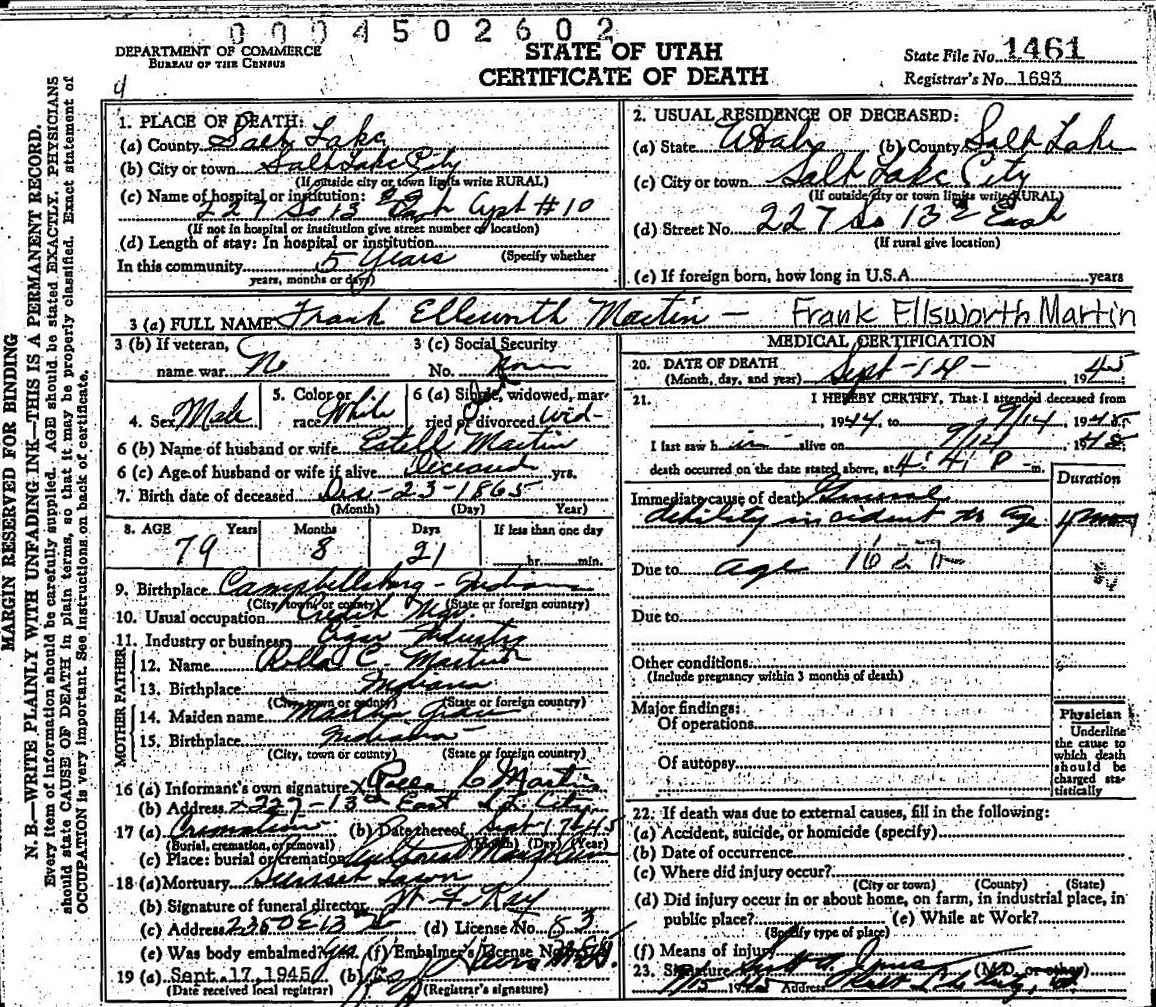 0004502602
DEPARTMENT OF COMMERCE
BUREAU OF THE CENSUS
STATE OF UTAH
CERTIFICATE OF DEATH
State File No. 1461
Registrar's No. 1693
4
MARGIN RESERVED FOR BINDING
N. B.—WRITE PLAINLY WITH UNFADING INK—THIS IS A PERMANENT RECORD.
Every item of information should be carefully supplied. AGE should be stated EXACTLY. PHYSICIANS
should state CAUSE OF DEATH in plain terms, so that it may be properly classified. Exact statement of
OCCUPATION is very important. See instructions on back of certificate.
1. PLACE OF DEATH:
(a) County Salt Lake
(b) City or town Salt Lake City
(If outside city or town limits write RURAL)
(c) Name of hospital or institution:
227 So 13 East Apt #10
(If not in hospital or institution give street number or location)
(d) Length of stay: In hospital or institution
(Specify whether
In this community 5 Years
years, months or days)
2. USUAL RESIDENCE OF DECEASED:
(a) State Utah (b) County Salt Lake
(c) City or town Salt Lake City
(If outside city or town limits write RURAL)
(d) Street No. 227 So 13 East
(If rural give location)
(e) If foreign born, how long in U.S.A. years
3 (a) FULL NAME Frank Ellsworth Martin — Frank Ellsworth Martin
3 (b) If veteran,
name war No
3 (c) Social Security
No. None
4. Sex Male
5. Color or
race White
6 (a) Single, widowed, mar-
ried or divorced Wid-
6 (b) Name of husband or wife Estell Martin
6 (c) Age of husband or wife if alive Deceased yrs.
7. Birth date of deceased Dec-23-1865
(Month) (Day) Year)
8. AGE Years Months Days If less than one day
79 8 21 hr. min.
9. Birthplace Campbellsburg - Indiana
(City, town, or county) (State or foreign country)
10. Usual occupation Credit Mgr
11. Industry or business Cigar Industry
FATHER
12. Name Rolla C. Martin
13. Birthplace Indiana
(City, town or county) (State or foreign country)
MOTHER
14. Maiden name
15. Birthplace Indiana
(City, town or county) (State or foreign country)
16 (a) Informant's own signature x Rolla C Martin
(b) Address 227-13 East S.L. City
17 (a) Cremation (b) Date thereof Sept 17 1945
(Burial, cremation, or removal) (Month) (Day) (Year)
(c) Place: burial or cremation
18 (a) Mortuary Sunset Lawn
(b) Signature of funeral director
(c) Address 2350 E 13 So (d) License No. 53
(e) Was body embalmed? Yes (f) Embalmer's License No.
19 (a) Sept. 17, 1945 (b)
(Date received local registrar) (Registrar's signature)
MEDICAL CERTIFICATION
20. DATE OF DEATH
(Month, day, and year) Sept-14- 1945;
21. I HEREBY CERTIFY, That I attended deceased from
, 1944, to 9/14, 1945
I last saw h im alive on 9/14 1945
death occurred on the date stated above, at 4:41 P -m.
Duration
Immediate cause of death General
debility incident to age
Due to age
Due to
Other conditions
(Include pregnancy within 3 months of death)
Major findings:
Of operations
Of autopsy
Physician
Underline
the cause to
which death
should be
charged sta-
tistically
22. If death was due to external causes, fill in the following:
(a) Accident, suicide, or homicide (specify)
(b) Date of occurrence
(c) Where did injury occur?
(City or town) (County) (State)
(d) Did injury occur in or about home, on farm, in industrial place, in
public place? (e) While at Work?
(Specify type of place)
(f) Means of injury
23. Signature (M.D. or other)
Address Salt Lake City, U.